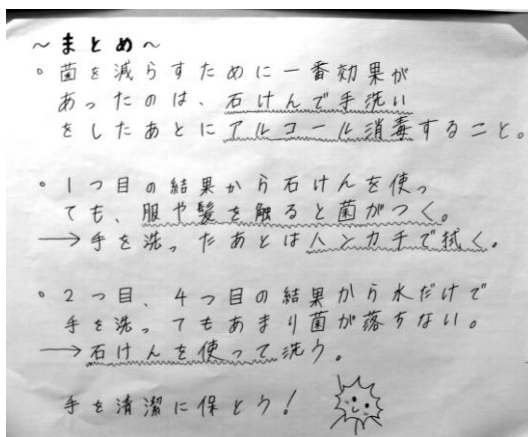 ～まとめ～
。菌を減らすために一番効果が
あったのは、石けんで手洗い
をしたあとにアルコール消毒すること。
。1つ目の結果から石けんを使っ
ても、服や髪を触ると菌がつく。
→手を洗ったあとはハンカチで拭く。
。2つ目、4つ目の結果から水だけで
手を洗ってもあまり菌が落ちない。
→石けんを使って洗う。
手を清潔に保とう!